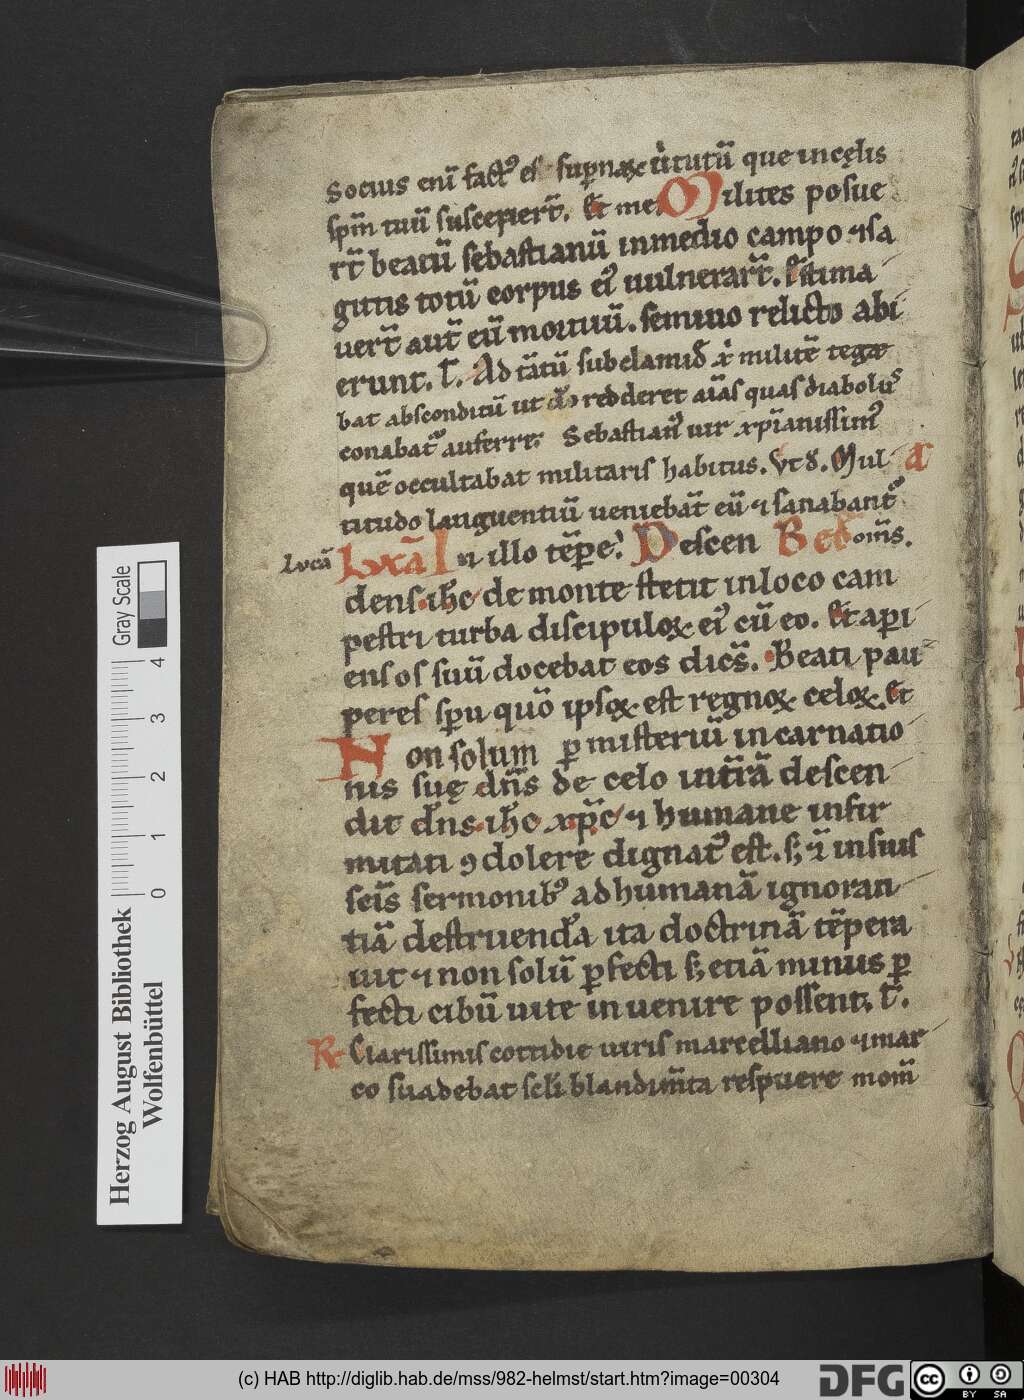 Socius eni᷑ fact᷒ es supnaꝝ uirtutū que in cęlis
spm̄ tuū susceper̄t. Et me. Milites posue
rt̄ beatū sebastianū in medio campo ⁊ sa
gittis totū corpus ei᷒ uulnerar̄t. Estima
uer̄t aut̄ eū mortuū. semiuo relicto abi
erunt. T̄. Ad tātū sub clamid̄ militē tegę
bat absconditū ut dō redderet aīas quas diabolus
conabat᷒ auferre. Sebastian᷒ uir xp̄ianissim᷒
quē occultabat militaris habitus. Vt đ. Mul A
titudo languentiū ueniebāt eū ⁊ sanabant᷒
Lucā Lucā In illo tēpe. Descen Bed om̄s.
dens ih̄c de monte stetit in loco cam
pestri turba discipuloꝝ ei᷒ cū eo. Et aperi
ens os suū docebat eos dicēs. Beati pau
peres spu quō ipsoꝝ est regnoꝝ celoꝝ. Et
Non solum ꝑ misteriū incarnatio
nis suę dn̄s de celo in tr̄ā descen
dit dn̄s ih̄c xp̄c ⁊ humane infir
mitati ꝯdolere dignat᷒ est. sꝫ ⁊ in suis
sc̄is sermonib᷒ ad humanā ignoran
tiā destruendā ita doctrinā tēpera
uit ⁊ non solū ꝑfecti sꝫ etiā minus ꝑ
fecti cibū uite inuenire possent. T̄.
R Clarissimis cottidie uiris marcelliano ⁊ mar
co suadebat scl̄i blandim̄ta respuere mom̄
Gray Scale
0 1 2 3 4
Herzog August Bibliothek
Wolfenbüttel
(c) HAB http://diglib.hab.de/mss/982-helmst/start.htm?image=00304
DFG
cc BY SA